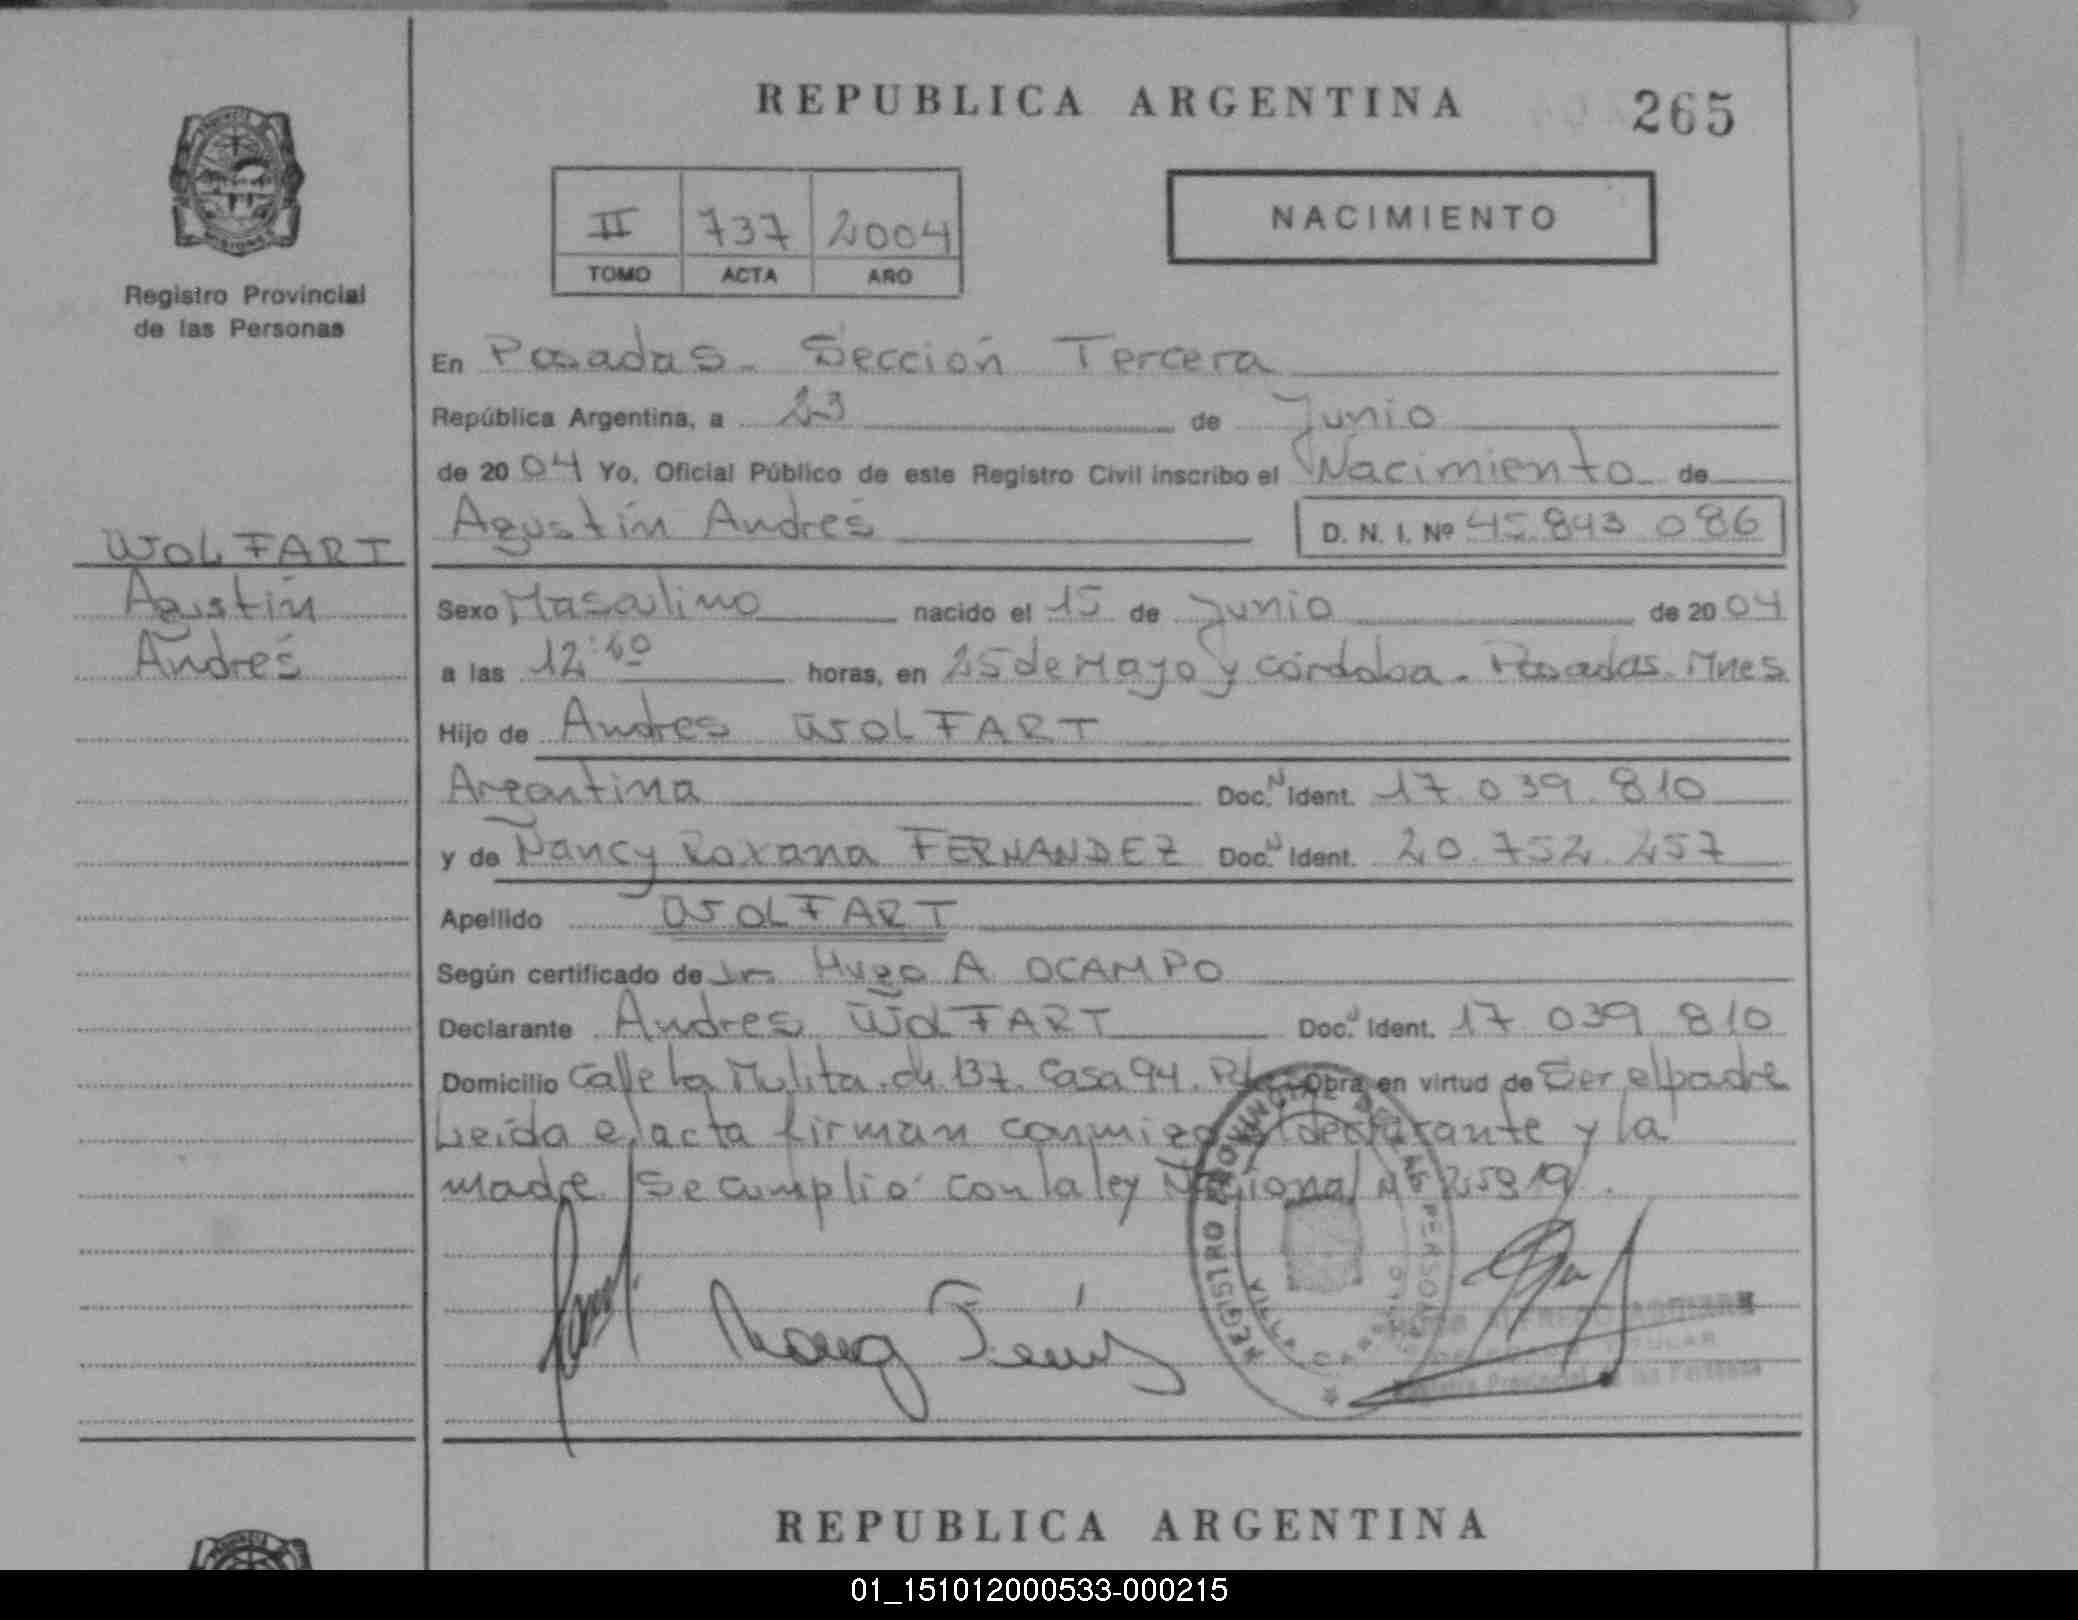 REPUBLICA ARGENTINA 265
II 737 2004
TOMO ACTA AÑO
NACIMIENTO
Registro Provincial
de las Personas
En Posadas - Sección Tercera
República Argentina, a 23 de Junio
de 2004 Yo, Oficial Público de este Registro Civil inscribo el Nacimiento de
Agustín Andrés D. N. I. Nº 45.843.086
WOLFART
Agustín
Andrés
Sexo Masculino nacido el 15 de Junio de 2004
a las 12:40 horas, en 25 de Mayo y Córdoba - Posadas. Mnes
Hijo de Andres WOLFART
Argentina Doc. N Ident. 17.039.810
y de Nancy Roxana FERNANDEZ Doc. N Ident. 20.752.257
Apellido WOLFART
Según certificado de Dr. Hugo A OCAMPO
Declarante Andres WOLFART Doc. N Ident. 17.039.810
Domicilio Calle La Mulita. ch 137. Casa 94. Obra en virtud de Ser el padre
Leída el acta firman conmigo declarante y la
madre. Se cumplió con la ley Nacional Nº 25819.
REGISTRO PROVINCIAL DE LAS PERSONAS
VILLA
Registro Provincial de las Personas
REPUBLICA ARGENTINA
01_151012000533-000215